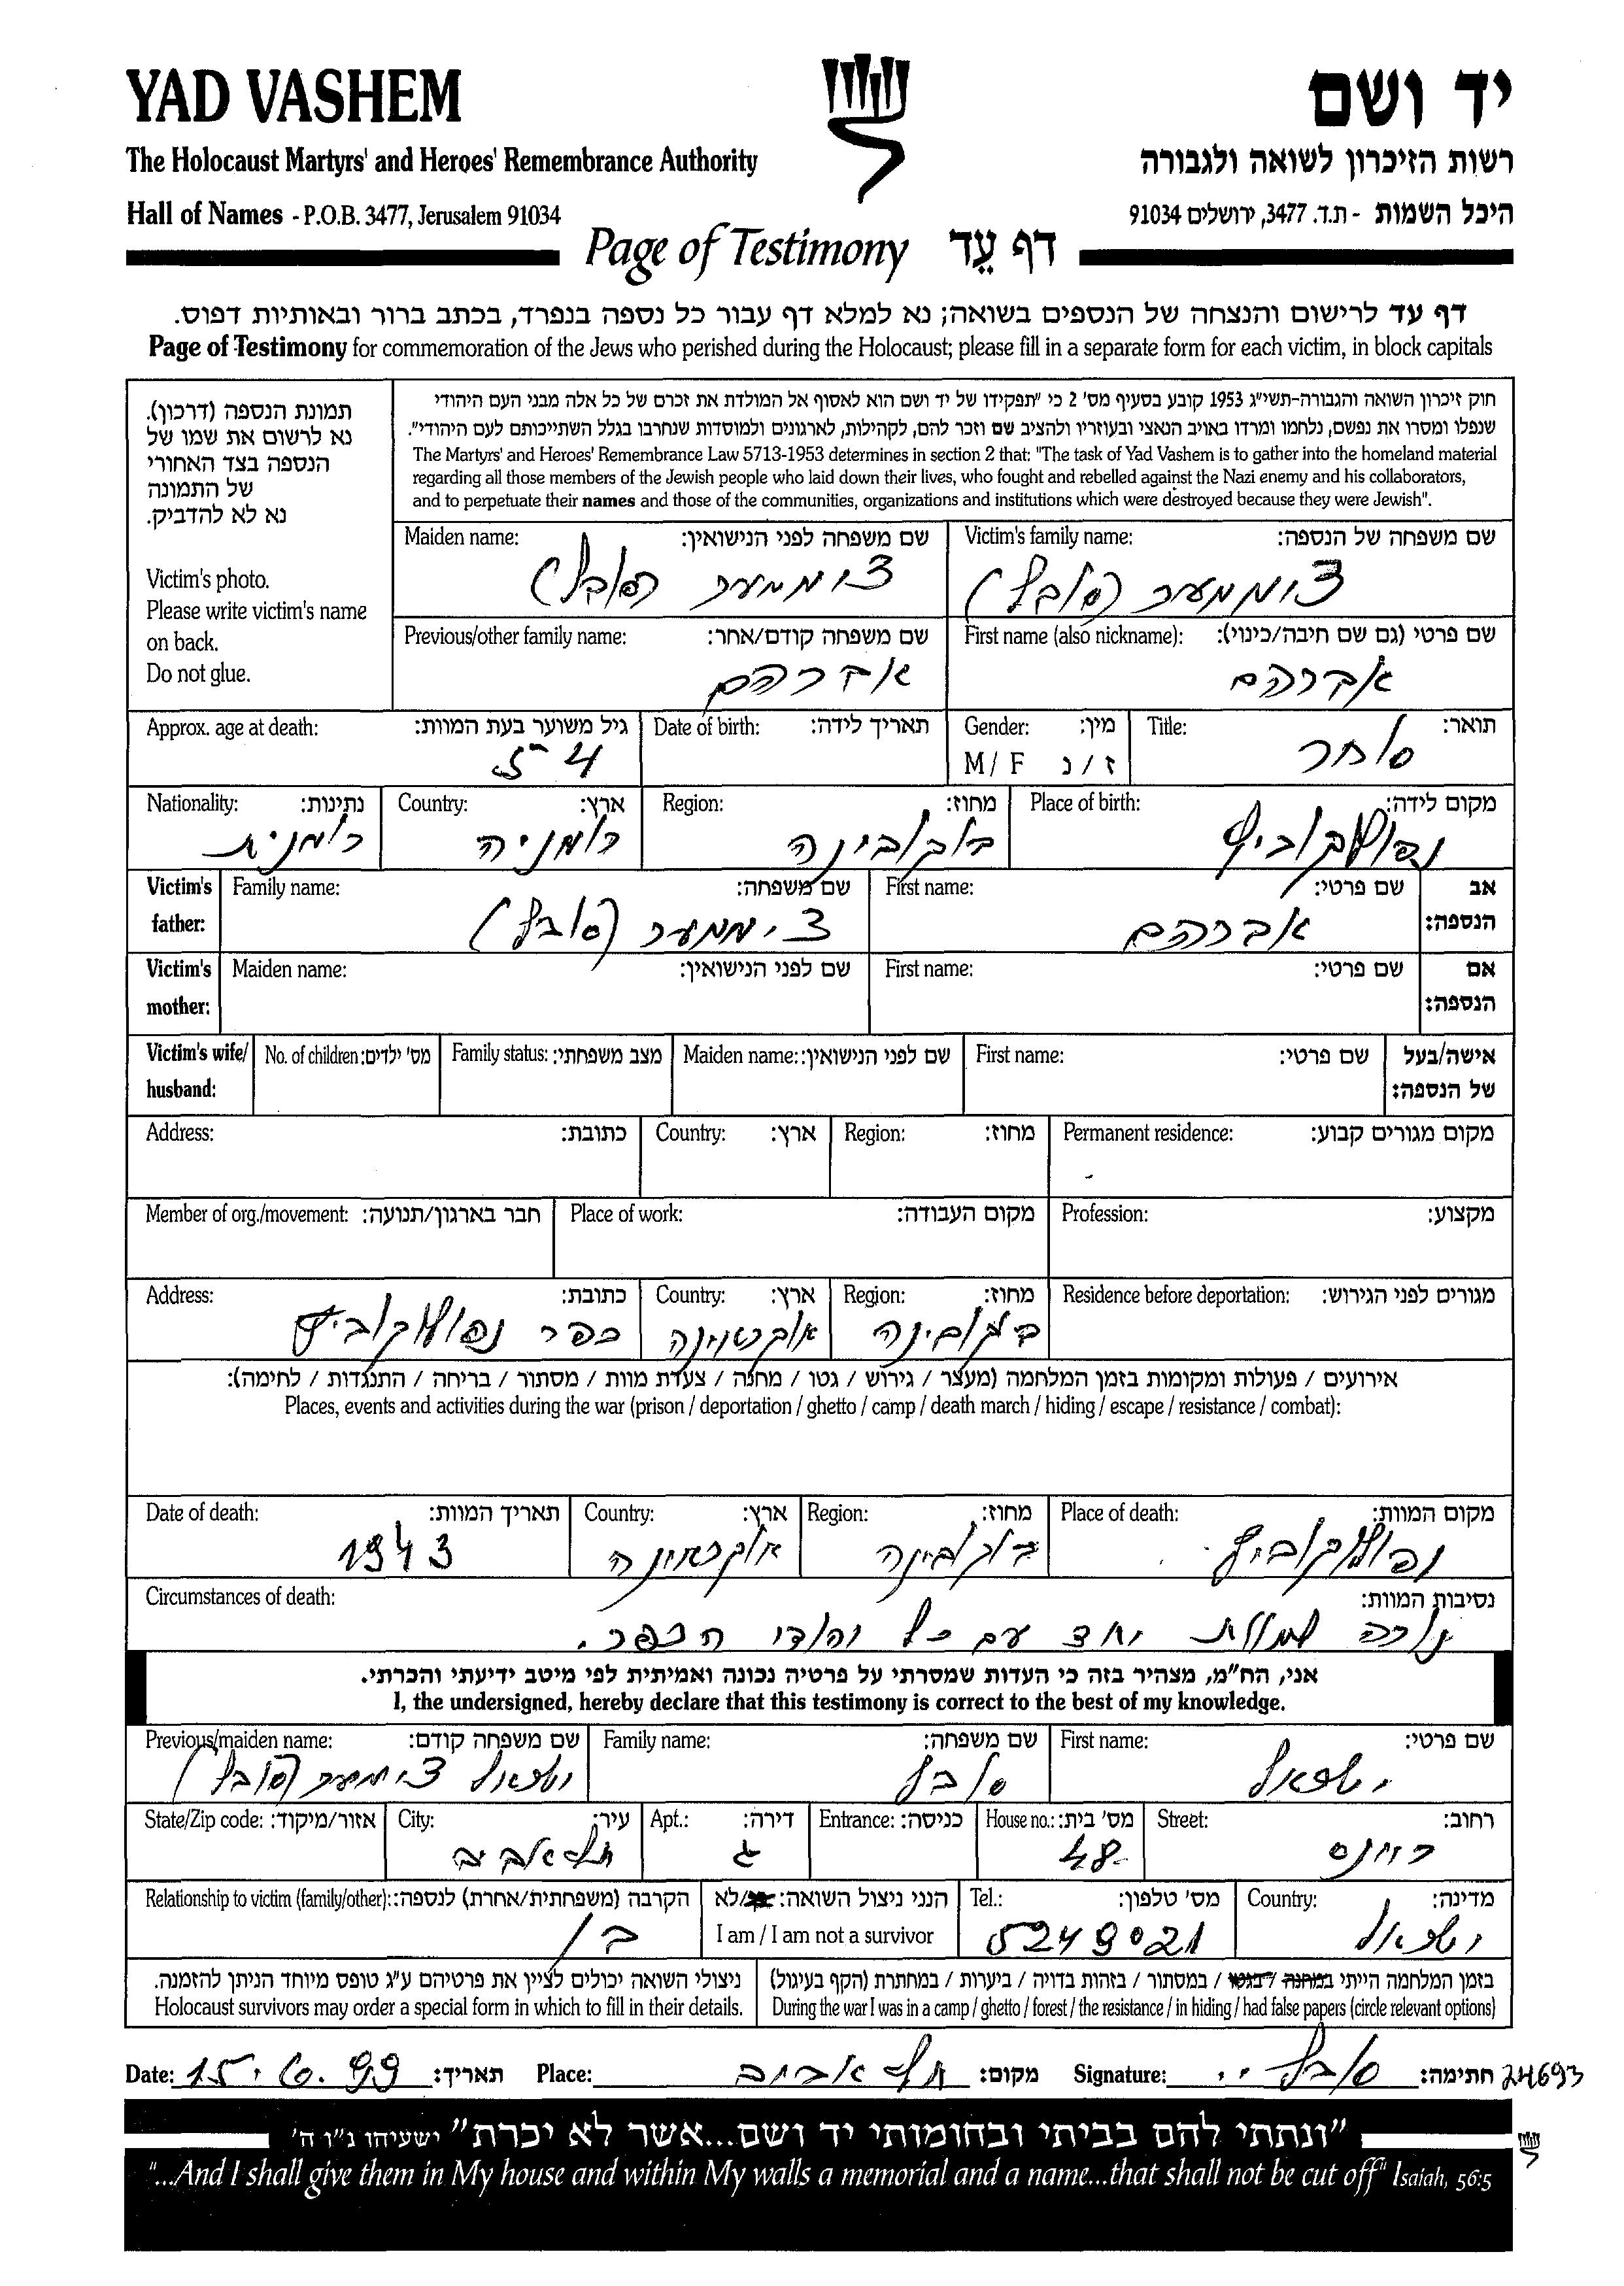 YAD VASHEM
יד ושם
The Holocaust Martyrs' and Heroes' Remembrance Authority
רשות הזיכרון לשואה ולגבורה
Hall of Names - P.O.B. 3477, Jerusalem 91034
היכל השמות - ת.ד. 3477, ירושלים 91034
Page of Testimony דף עֵד
דף עד לרישום והנצחה של הנספים בשואה; נא למלא דף עבור כל נספה בנפרד, בכתב ברור ובאותיות דפוס.
Page of Testimony for commemoration of the Jews who perished during the Holocaust; please fill in a separate form for each victim, in block capitals
תמונת הנספה (דרכון).
נא לרשום את שמו של
הנספה בצד האחורי
של התמונה
נא לא להדביק.
Victim's photo.
Please write victim's name
on back.
Do not glue.
חוק זיכרון השואה והגבורה-תשי"ג 1953 קובע בסעיף מס' 2 כי "תפקידו של יד ושם הוא לאסוף אל המולדת את זכרם של כל אלה מבני העם היהודי
שנפלו ומסרו את נפשם, נלחמו ומרדו באויב הנאצי ובעוזריו ולהציב שם וזכר להם, לקהילות, לארגונים ולמוסדות שנחרבו בגלל השתייכותם לעם היהודי".
The Martyrs' and Heroes' Remembrance Law 5713-1953 determines in section 2 that: "The task of Yad Vashem is to gather into the homeland material
regarding all those members of the Jewish people who laid down their lives, who fought and rebelled against the Nazi enemy and his collaborators,
and to perpetuate their names and those of the communities, organizations and institutions which were destroyed because they were Jewish".
Victim's family name: שם משפחה של הנספה:
צוממער (סובל)
Maiden name: שם משפחה לפני הנישואין:
צוממער (סובל)
First name (also nickname): שם פרטי (גם שם חיבה/כינוי):
אברהם
Previous/other family name: שם משפחה קודם/אחר:
אברהם
Title: תואר:
סוחר
Gender: מין:
M / F ז / נ
Date of birth: תאריך לידה:
Approx. age at death: גיל משוער בעת המוות:
54
Place of birth: מקום לידה:
Region: מחוז:
בוקובינה
Country: ארץ:
רומניה
Nationality: נתינות:
רומנית
Victim's father: אב הנספה:
First name: שם פרטי:
אברהם
Family name: שם משפחה:
צימממער (סובל)
Victim's mother: אם הנספה:
First name: שם פרטי:
Maiden name: שם לפני הנישואין:
Victim's wife/ husband: אישה/בעל של הנספה:
First name: שם פרטי:
Maiden name: שם לפני הנישואין:
Family status: מצב משפחתי:
No. of children: מס' ילדים:
Permanent residence: מקום מגורים קבוע:
Region: מחוז:
Country: ארץ:
Address: כתובת:
Profession: מקצוע:
Place of work: מקום העבודה:
Member of org./movement: חבר בארגון/תנועה:
Residence before deportation: מגורים לפני הגירוש:
Region: מחוז:
בוקובינה
Country: ארץ:
אוקראינה
Address: כתובת:
כפר
אירועים / פעולות ומקומות בזמן המלחמה (מעצר / גירוש / גטו / מחנה / צעדת מוות / מסתור / בריחה / התנגדות / לחימה):
Places, events and activities during the war (prison / deportation / ghetto / camp / death march / hiding / escape / resistance / combat):
Place of death: מקום המוות:
Region: מחוז:
בוקובינה
Country: ארץ:
אוקראינה
Date of death: תאריך המוות:
1943
Circumstances of death: נסיבות המוות:
נורה למוות יחד עם כל יהודי הכפר.
אני, הח"מ, מצהיר בזה כי העדות שמסרתי על פרטיה נכונה ואמיתית לפי מיטב ידיעתי והכרתי.
I, the undersigned, hereby declare that this testimony is correct to the best of my knowledge.
First name: שם פרטי:
ישראל
Family name: שם משפחה:
סובל
Previous/maiden name: שם משפחה קודם:
ישראל צוממער (סובל)
Street: רחוב:
ריינס
House no.: מס' בית:
48
Entrance: כניסה:
Apt.: דירה:
ג
City: עיר:
תל אביב
State/Zip code: אזור/מיקוד:
Country: מדינה:
ישראל
Tel.: מס' טלפון:
5249021
הנני ניצול השואה: /לא
I am / I am not a survivor
Relationship to victim (family/other): הקרבה (משפחתית/אחרת) לנספה:
בן
בזמן המלחמה הייתי במחנה / בגטו / במסתור / בזהות בדויה / ביערות / במחתרת (הקף בעיגול)
During the war I was in a camp / ghetto / forest / the resistance / in hiding / had false papers (circle relevant options)
ניצולי השואה יכולים לציין את פרטיהם ע"ג טופס מיוחד הניתן להזמנה.
Holocaust survivors may order a special form in which to fill in their details.
Date: 15.6.99 תאריך: Place: תל אביב מקום: Signature: סובל י. חתימה: 24693
"ונתתי להם בביתי ובחומותי יד ושם...אשר לא יכרת" ישעיהו נ"ו ה'
"...And I shall give them in My house and within My walls a memorial and a name...that shall not be cut off" Isaiah, 56:5